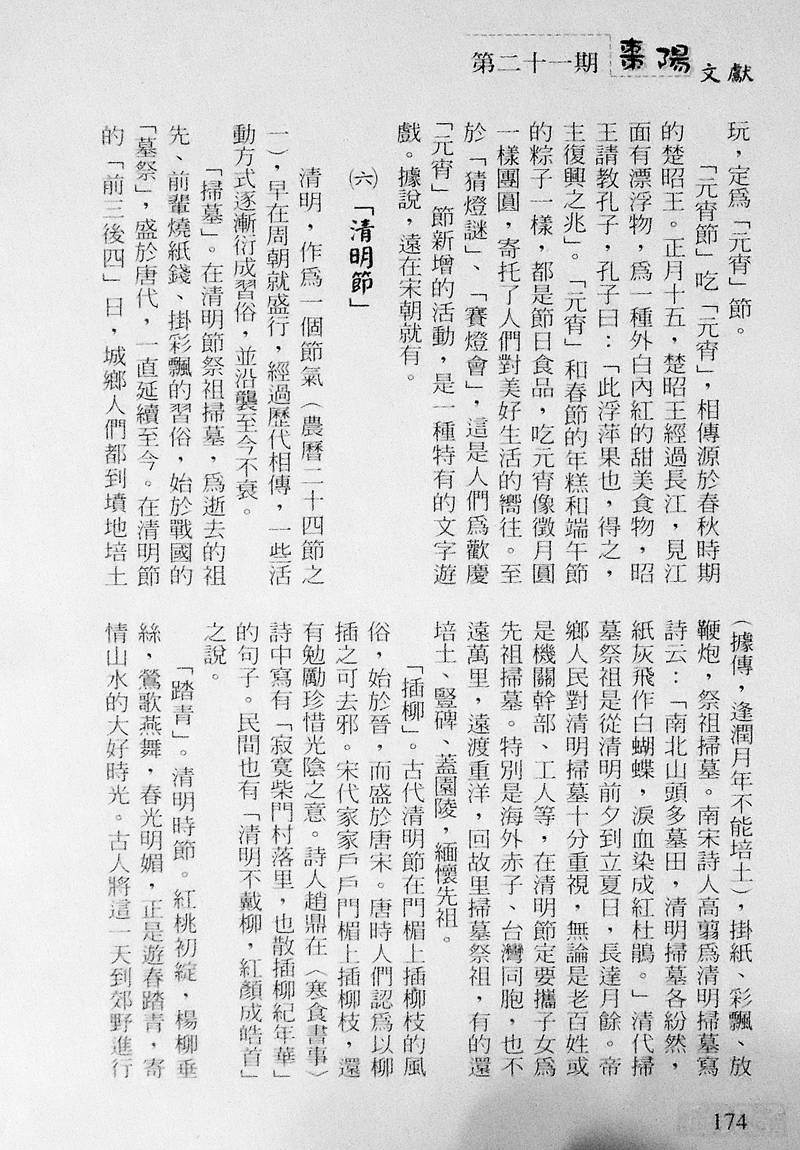 第二十一期 棗陽文獻
玩，定爲「元宵」節。
「元宵節」吃「元宵」，相傳源於春秋時期
的楚昭王。正月十五，楚昭王經過長江，見江
面有漂浮物，爲一種外白內紅的甜美食物，昭
王請教孔子，孔子曰：「此浮萍果也，得之，
主復興之兆」。「元宵」和春節的年糕和端午節
的粽子一樣，都是節日食品，吃元宵像徵月圓
一樣團圓，寄托了人們對美好生活的嚮往。至
於「猜燈謎」、「賽燈會」，這是人們爲歡慶
「元宵」節新增的活動，是一種特有的文字遊
戲。據說，遠在宋朝就有。
㈥「清明節」
清明，作爲一個節氣（農曆二十四節之
一），早在周朝就盛行，經過歷代相傳，一些活
動方式逐漸衍成習俗，並沿襲至今不衰。
「掃墓」。在清明節祭祖掃墓，爲逝去的祖
先、前輩燒紙錢、掛彩飄的習俗，始於戰國的
「墓祭」，盛於唐代，一直延續至今。在清明節
的「前三後四」日，城鄉人們都到墳地培土
（據傳，逢潤月年不能培土），掛紙、彩飄、放
鞭炮，祭祖掃墓。南宋詩人高翥爲清明掃墓寫
詩云：「南北山頭多墓田，清明掃墓各紛然，
紙灰飛作白蝴蝶，淚血染成紅杜鵑。」清代掃
墓祭祖是從清明前夕到立夏日，長達月餘。帝
鄉人民對清明掃墓十分重視，無論是老百姓或
是機關幹部、工人等，在清明節定要攜子女爲
先祖掃墓。特別是海外赤子、台灣同胞，也不
遠萬里，遠渡重洋，回故里掃墓祭祖，有的還
培土、豎碑、蓋園陵，緬懷先祖。
「插柳」。古代清明節在門楣上插柳枝的風
俗，始於晉，而盛於唐宋。唐時人們認爲以柳
插之可去邪。宋代家家戶戶門楣上插柳枝，還
有勉勵珍惜光陰之意。詩人趙鼎在〈寒食書事〉
詩中寫有「寂寞柴門村落里，也散插柳紀年華」
的句子。民間也有「清明不戴柳，紅顏成皓首」
之說。
「踏青」。清明時節。紅桃初綻，楊柳垂
絲，鶯歌燕舞，春光明媚，正是遊春踏青，寄
情山水的大好時光。古人將這一天到郊野進行
174